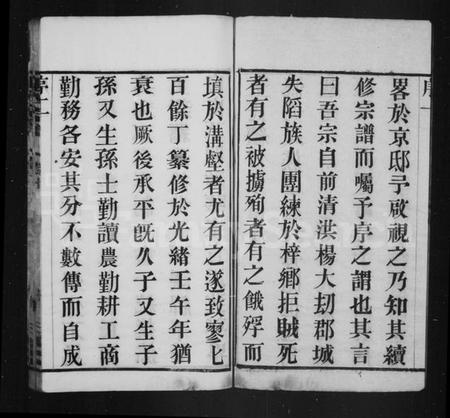 畧於京邸予啟視之乃知其續
修宗譜而囑予序之謂也其言
曰吾宗自前清洪楊大刧郡城
失䧟族人團練於梓鄉拒賊死
者有之被擄殉者有之餓殍而
填於溝壑者尤有之遂致寥七
百餘丁纂修於光緒壬午年猶
衰也厥後承平旣久子又生子
孫又生孫士勤讀農勤耕工商
勤務各安其分不數傳而自成